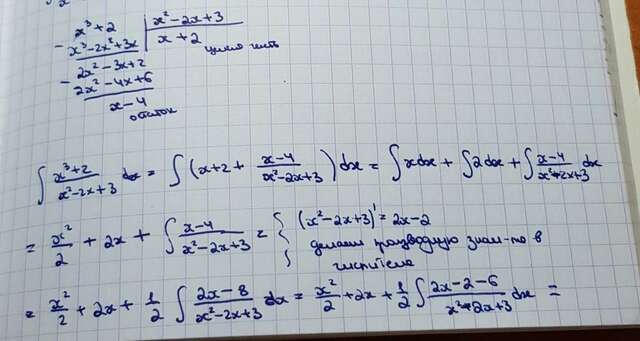 x³ + 2 | x² - 2x + 3
- x³ - 2x² + 3x | x + 2 целая часть
2x² - 3x + 2
- 2x² - 4x + 6
x - 4
остаток
∫ (x³+2)/(x²-2x+3) dx = ∫ (x+2 + (x-4)/(x²-2x+3)) dx = ∫ x dx + ∫ 2 dx + ∫ (x-4)/(x²-2x+3) dx
= x²/2 + 2x + ∫ (x-4)/(x²-2x+3) = { (x²-2x+3)' = 2x-2
делаем производную знам-ля в
числителе
= x²/2 + 2x + 1/2 ∫ (2x-8)/(x²-2x+3) dx = x²/2 + 2x + 1/2 ∫ (2x-2-6)/(x²-2x+3) dx =